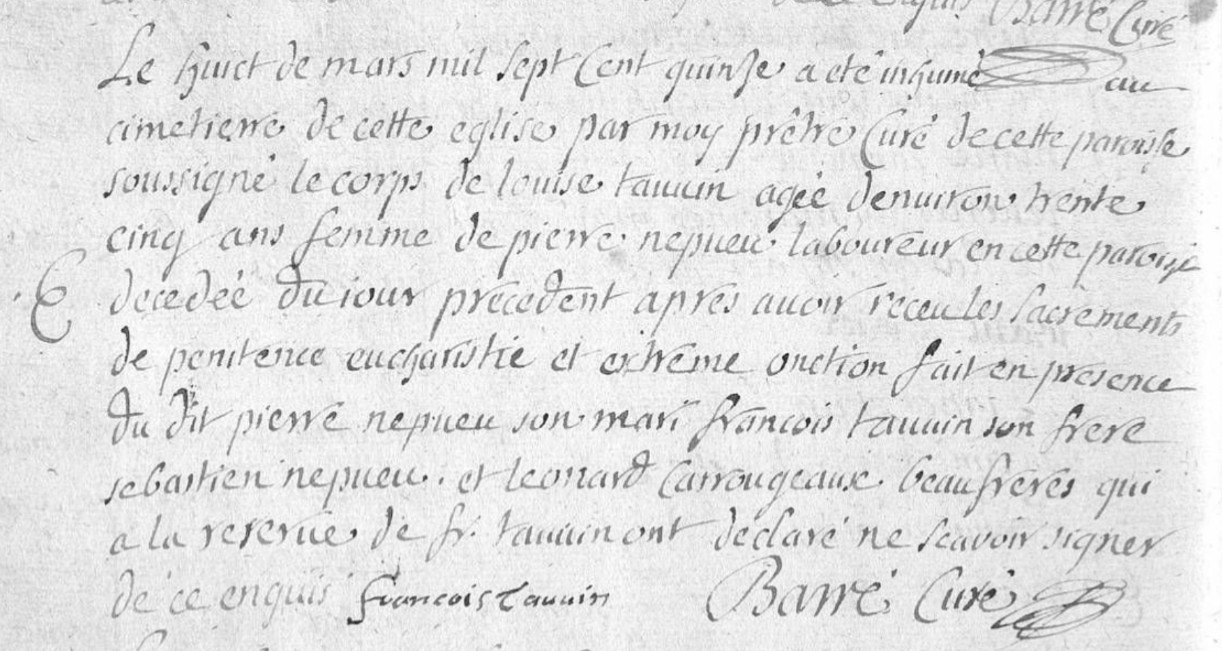 Barré Curé
Le huict de mars mil sept Cent quinse a eté inhumé au
cimetierre de cette eglise par moy prêtre Curé de cette paroisse
soussigné le corps de louise tauuin agée denuiron trente
cinq ans femme de pierre nepueu laboureur en cette paroisse
decedée du iour precedent apres auoir receu les sacrements
de penitence eucharistie et extrême onction fait en presence
du dit pierre nepueu son mari francois tauuin son frere
sebastien nepueu. et leonard Carrougeaux beaufreres qui
a la reserue de fr. tauuin ont declaré ne scauoir signer
de ce enquis francois tauuin Barré Curé